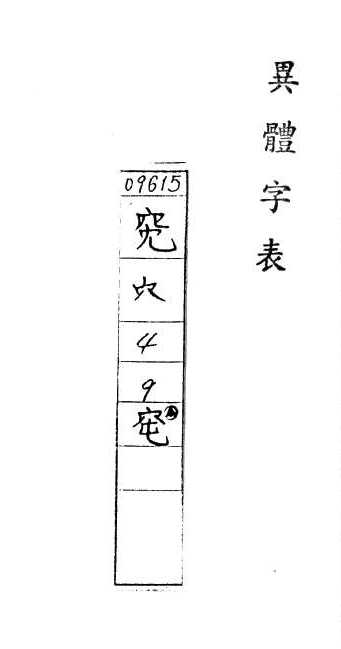 異體字表
09615
穴
4
9